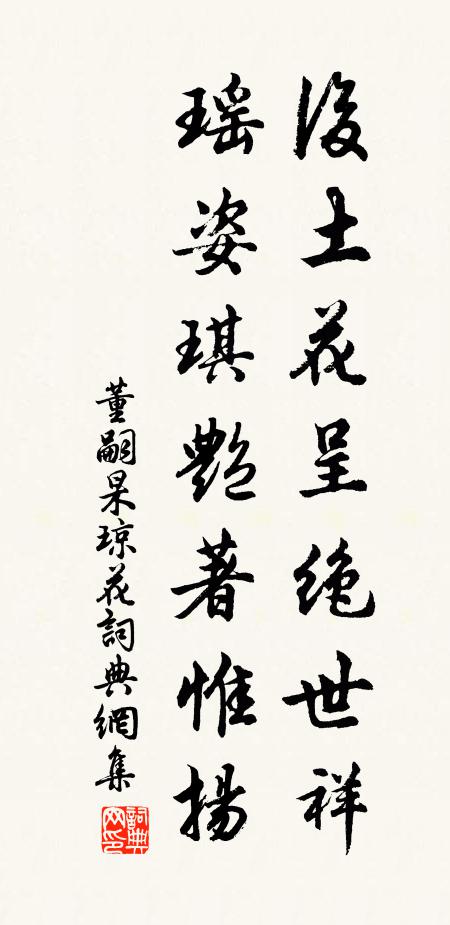 後土花呈絶世祥
瑶姿琪艷著惟揚
董嗣杲琼花詞典網集
詞典网印